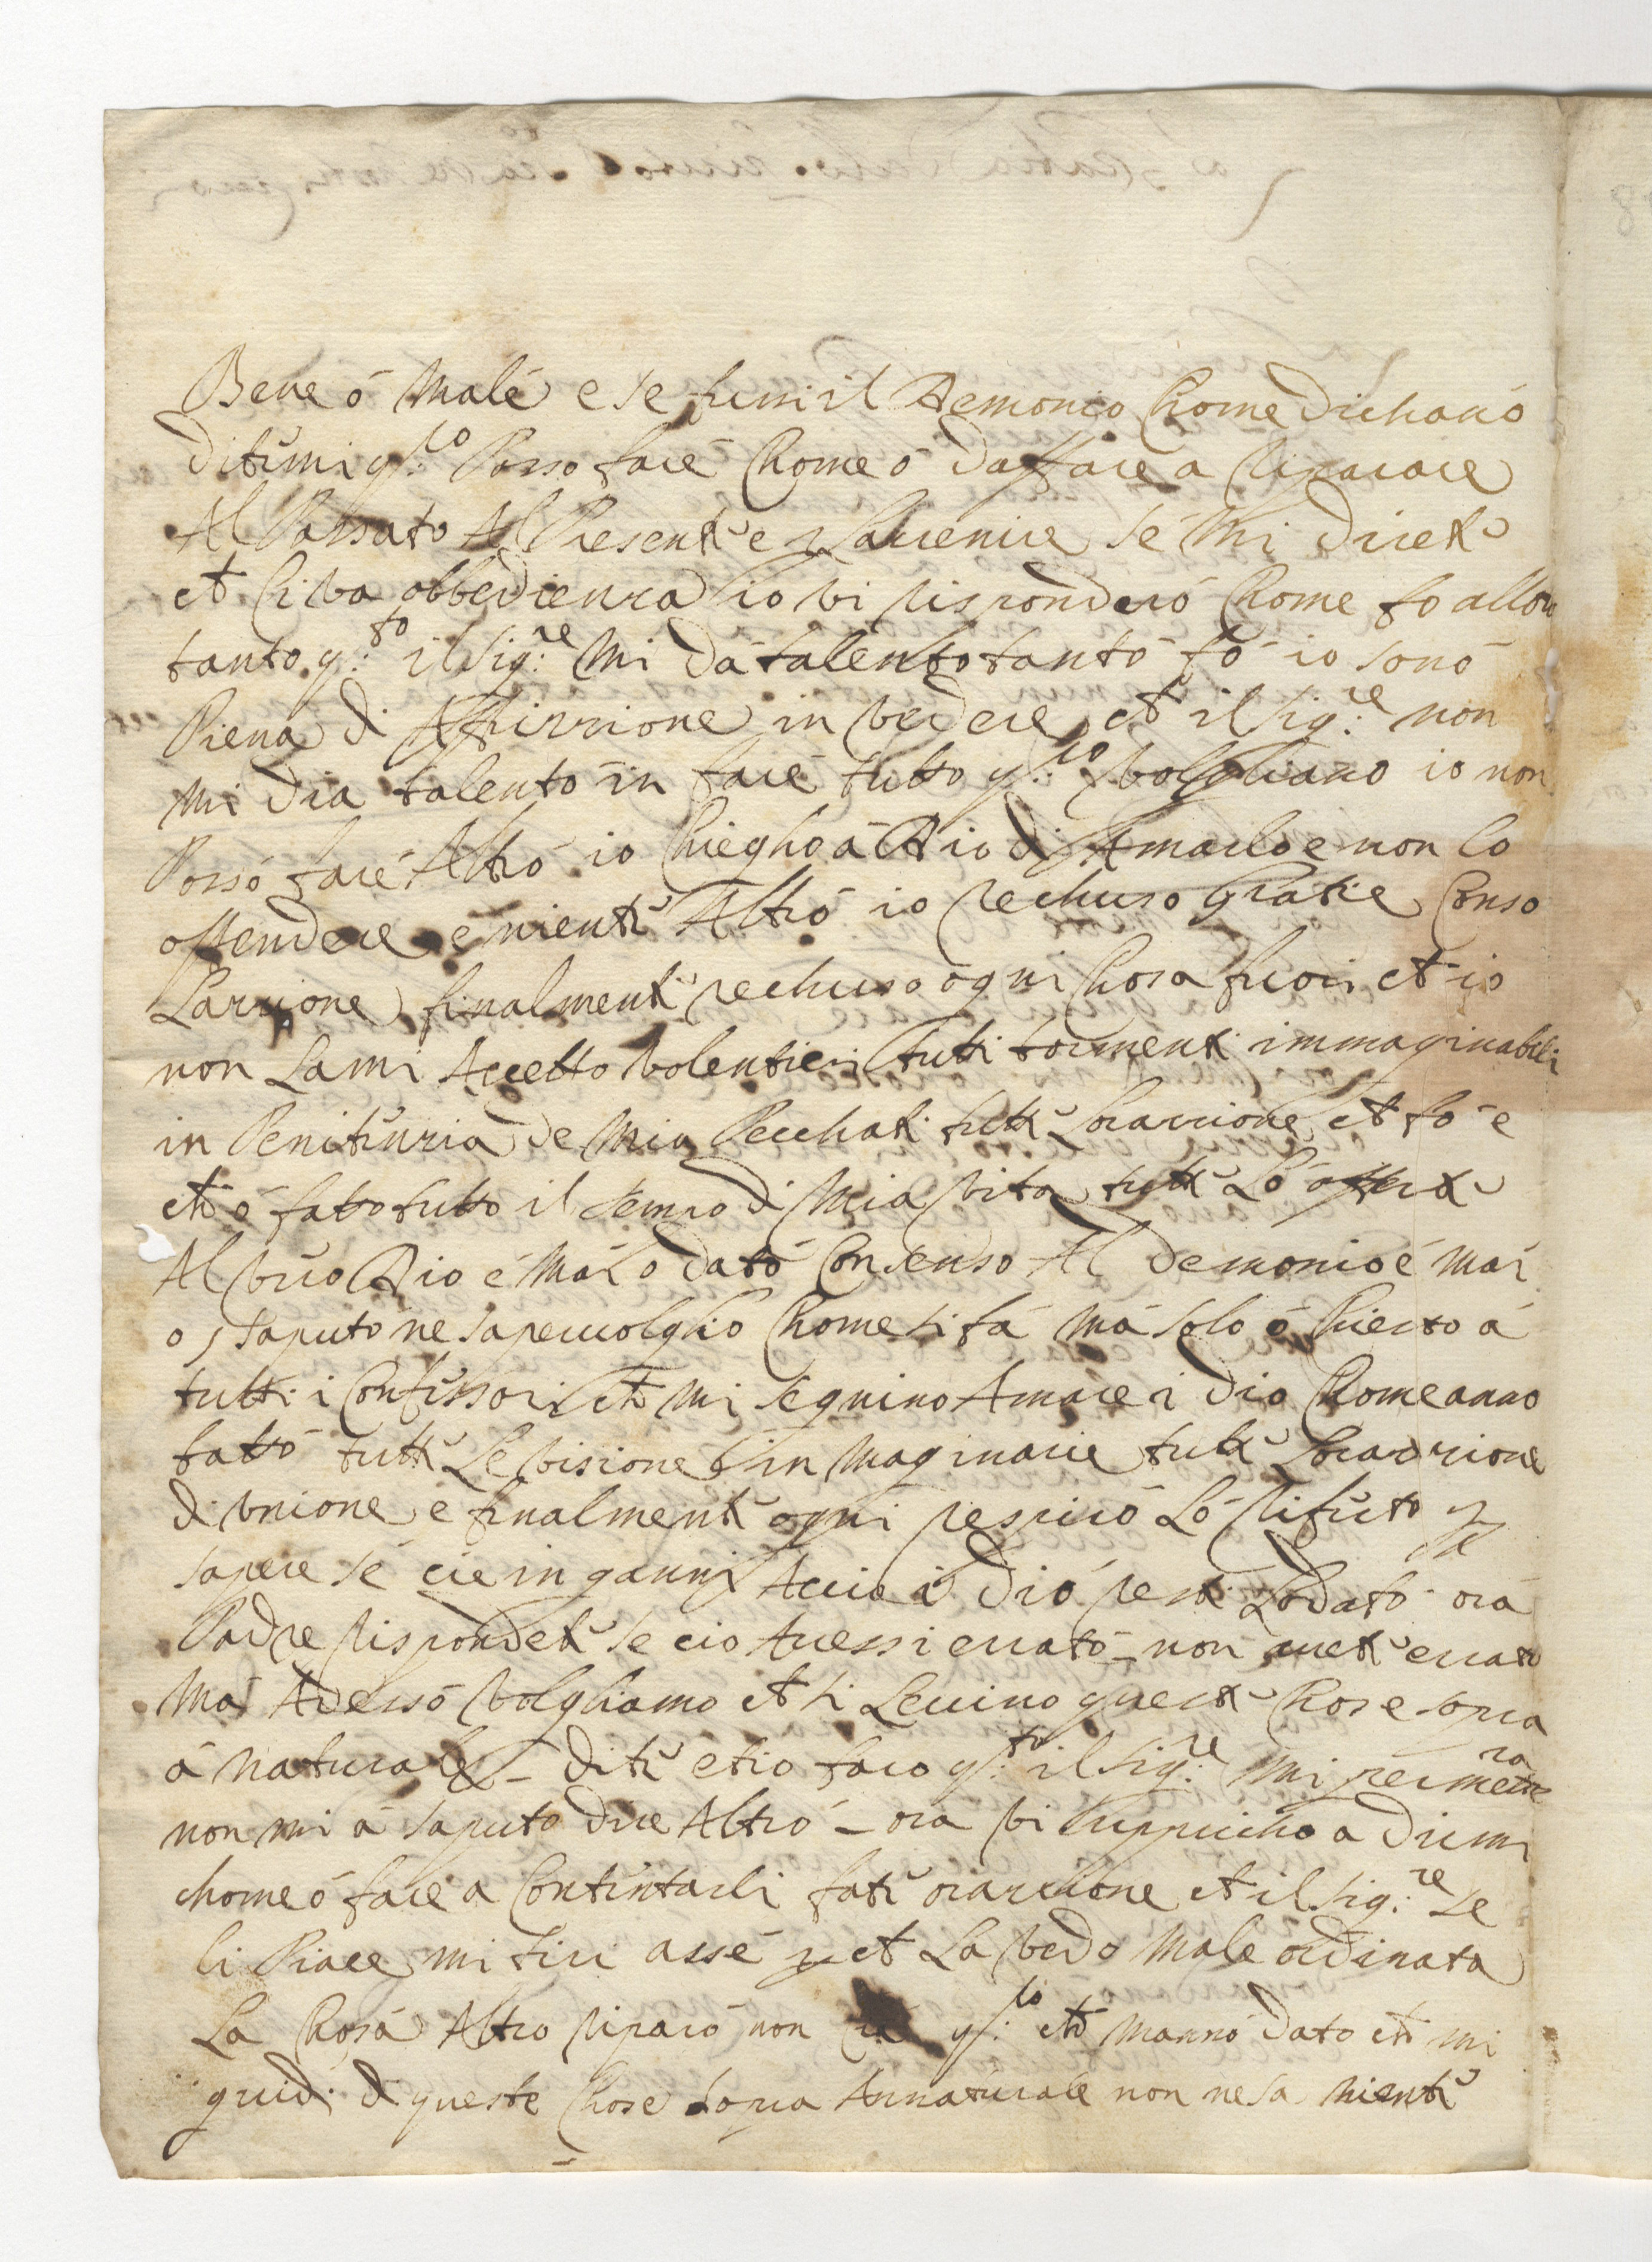 Bene ó Malé e se fussi il Demonio Chome dichanó
ditimi q.to Posso faré Chome ó daffare a riparare
Al Passato Al Presente e Lavenire sé Mi direte
et Ci va obbedienza io vi risponderó Chome fo allora
tanto q.to il Sig.re Mi dá talento tantó fó io sonó
Piena di Affrizzione in vedere et il Sig.re non
Mi dia talento in faré tutto q.to volghano io non
Possó faré Altró io Chiegho á Dio di Amarlo e non lo
offendere e niente Altró io rechuso Gratie Conso
Lazzione finalmente rechuso ogni Chosa fuori et io
non Lami Accetto volentieri tutti tormenti immaginabili
in Penitenzia de Mia Pecchati tutte Lorazzione et fo e
et ó fatto tutto il Tempo di Mia vita tutte Ló offerte
Al vero Dio é Mái o dató Consenso Al demonio é mái
o saputó ne saper volghio Chome si fá má solo ó Chiesto á
tutti i Confessori et mi segnino Amare i dio Chome anno
fattó tutte Le visione inmaginarie tutte Lorazzione
di vnione e finalmente ogni respiró Ló Rifiuto p
sapere sé cie inganni Accio i Dió resti Lodató orá
Padre rispondete se cio Avessi errató _ non avete errato
Má Adessó volghiamo et si Levino queste Chose sopra
á naturale _ dite et io faro q.to il Sig.re mi permettera
non mi á saputo dire Altró _ ora vi suppricho a dirmi
chome ó faré a Contintarli fate orazzione et il Sig.re se
li Piace mi tiri assé p et La vedo Male ordinata
La Chosá Altro riparó non q.to et manno dato et mi
guidi di queste Chose sopra Annaturale non ne sa niente